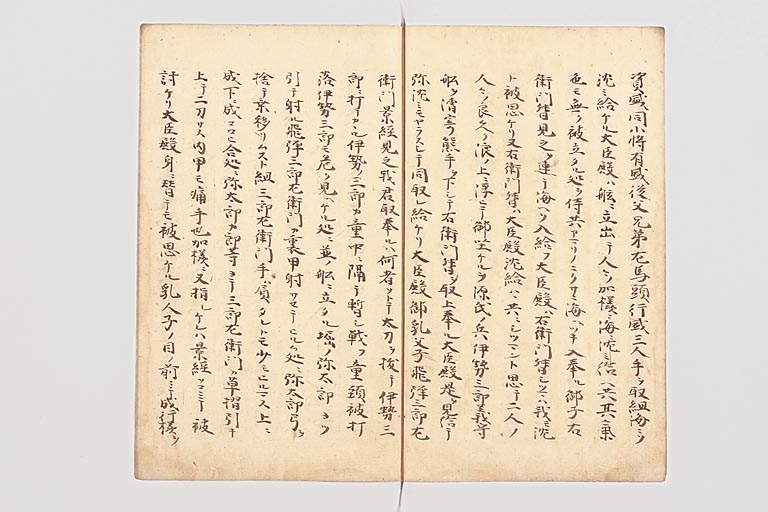 資盛同小将有盛従父兄弟左馬頭行盛三人手ヲ取組海ニソ
沈ミ給ケル大臣殿ハ舷ニ立出テ人々ノ加様ニ海ニ沈ミ給ヘ共其気
色モ無ク被立タル処ヲ侍共アマリノニクサニ海ヘツキ入奉ル御子右
衛門督見之ツヽ連テ海ヘソ入給フ大臣殿ハ右衛門督シツマハ我モ沈
ト被思ケリ又右衛門督ハ大臣殿沈給ハヽ共ニシツマント思テ二人ノ
人々良久ク浪ノ上ニ浮ニテ御坐ケルヲ源氏ノ兵伊勢三郎義等
船ヲ漕寄テ熊手ヲ下シテ右衛門督ヲ取上奉ル大臣殿是ヲ見給テ
弥沈ミモヤラスシテ同取レ給ケリ大臣殿御乳父子飛弾三郎左
衛門景経見之我君取奉ルハ何者ソトテ太刀ヲ抜テ伊勢三
郎ニ打テカヽル伊勢ノ三郎カ童中ニ隔テ暫シ戦フ童頸被打
落伊勢三郎モ危ク見ヘケル処ニ並ノ船ニ立タル堀ノ弥太郎ヨク
引テ射ル飛弾三郎左衛門カ裏甲射サセテヒルム処ニ弥太郎弓ヲ
捨テ乗移リムスト組三郎左衛門手ハ負タレトモ少モヒルマス上ニ
成下ニ成コロヒ合処ニ弥太郎カ郎等ヨテ三郎左衛門カ草摺引キ
上テ二刀サス内甲モ痛手也加様ニ又指レケレハ景経ツヰニ被
討ケリ大臣殿身ニ替テモ被思ケル乳人子ノ目ノ前ニテ成行様ヲ